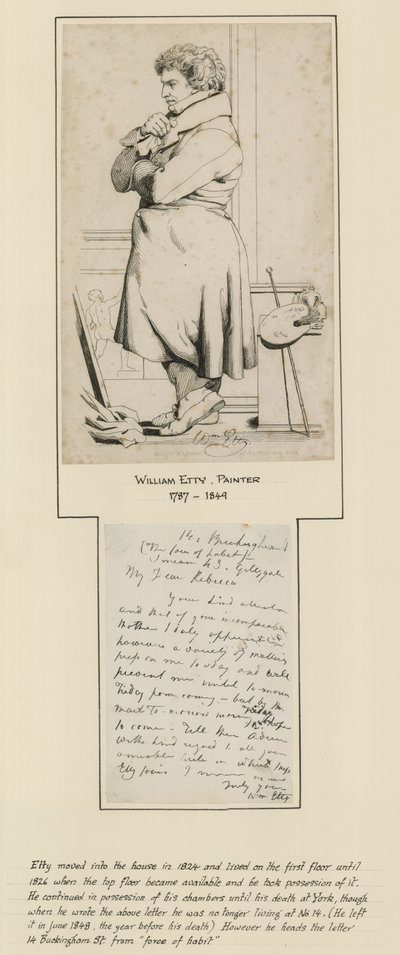 Wm Etty
WILLIAM ETTY, PAINTER
1787 - 1849
14, Buckingham
(the force of habit)
I mean 43, Gillygate
My Dear Rebecca
Your kind attention
and that of your incomparable
Mother I duly appreciate
however a variety of matters
press on me to day and will
prevent me until to morrow
Friday from coming – but
to come – Tell
with kind regard to all your
amiable
Etty joins I
truly yours
Wm Etty
Etty moved into the house in 1824 and lived on the first floor until
1826 when the top floor became available and he took possession of it.
He continued in possession of his chambers until his death at York, though
when he wrote the above letter he was no longer living at No 14. (He left
it in June 1848, the year before his death) However he heads the letter
14 Buckingham St. from "force of habit"